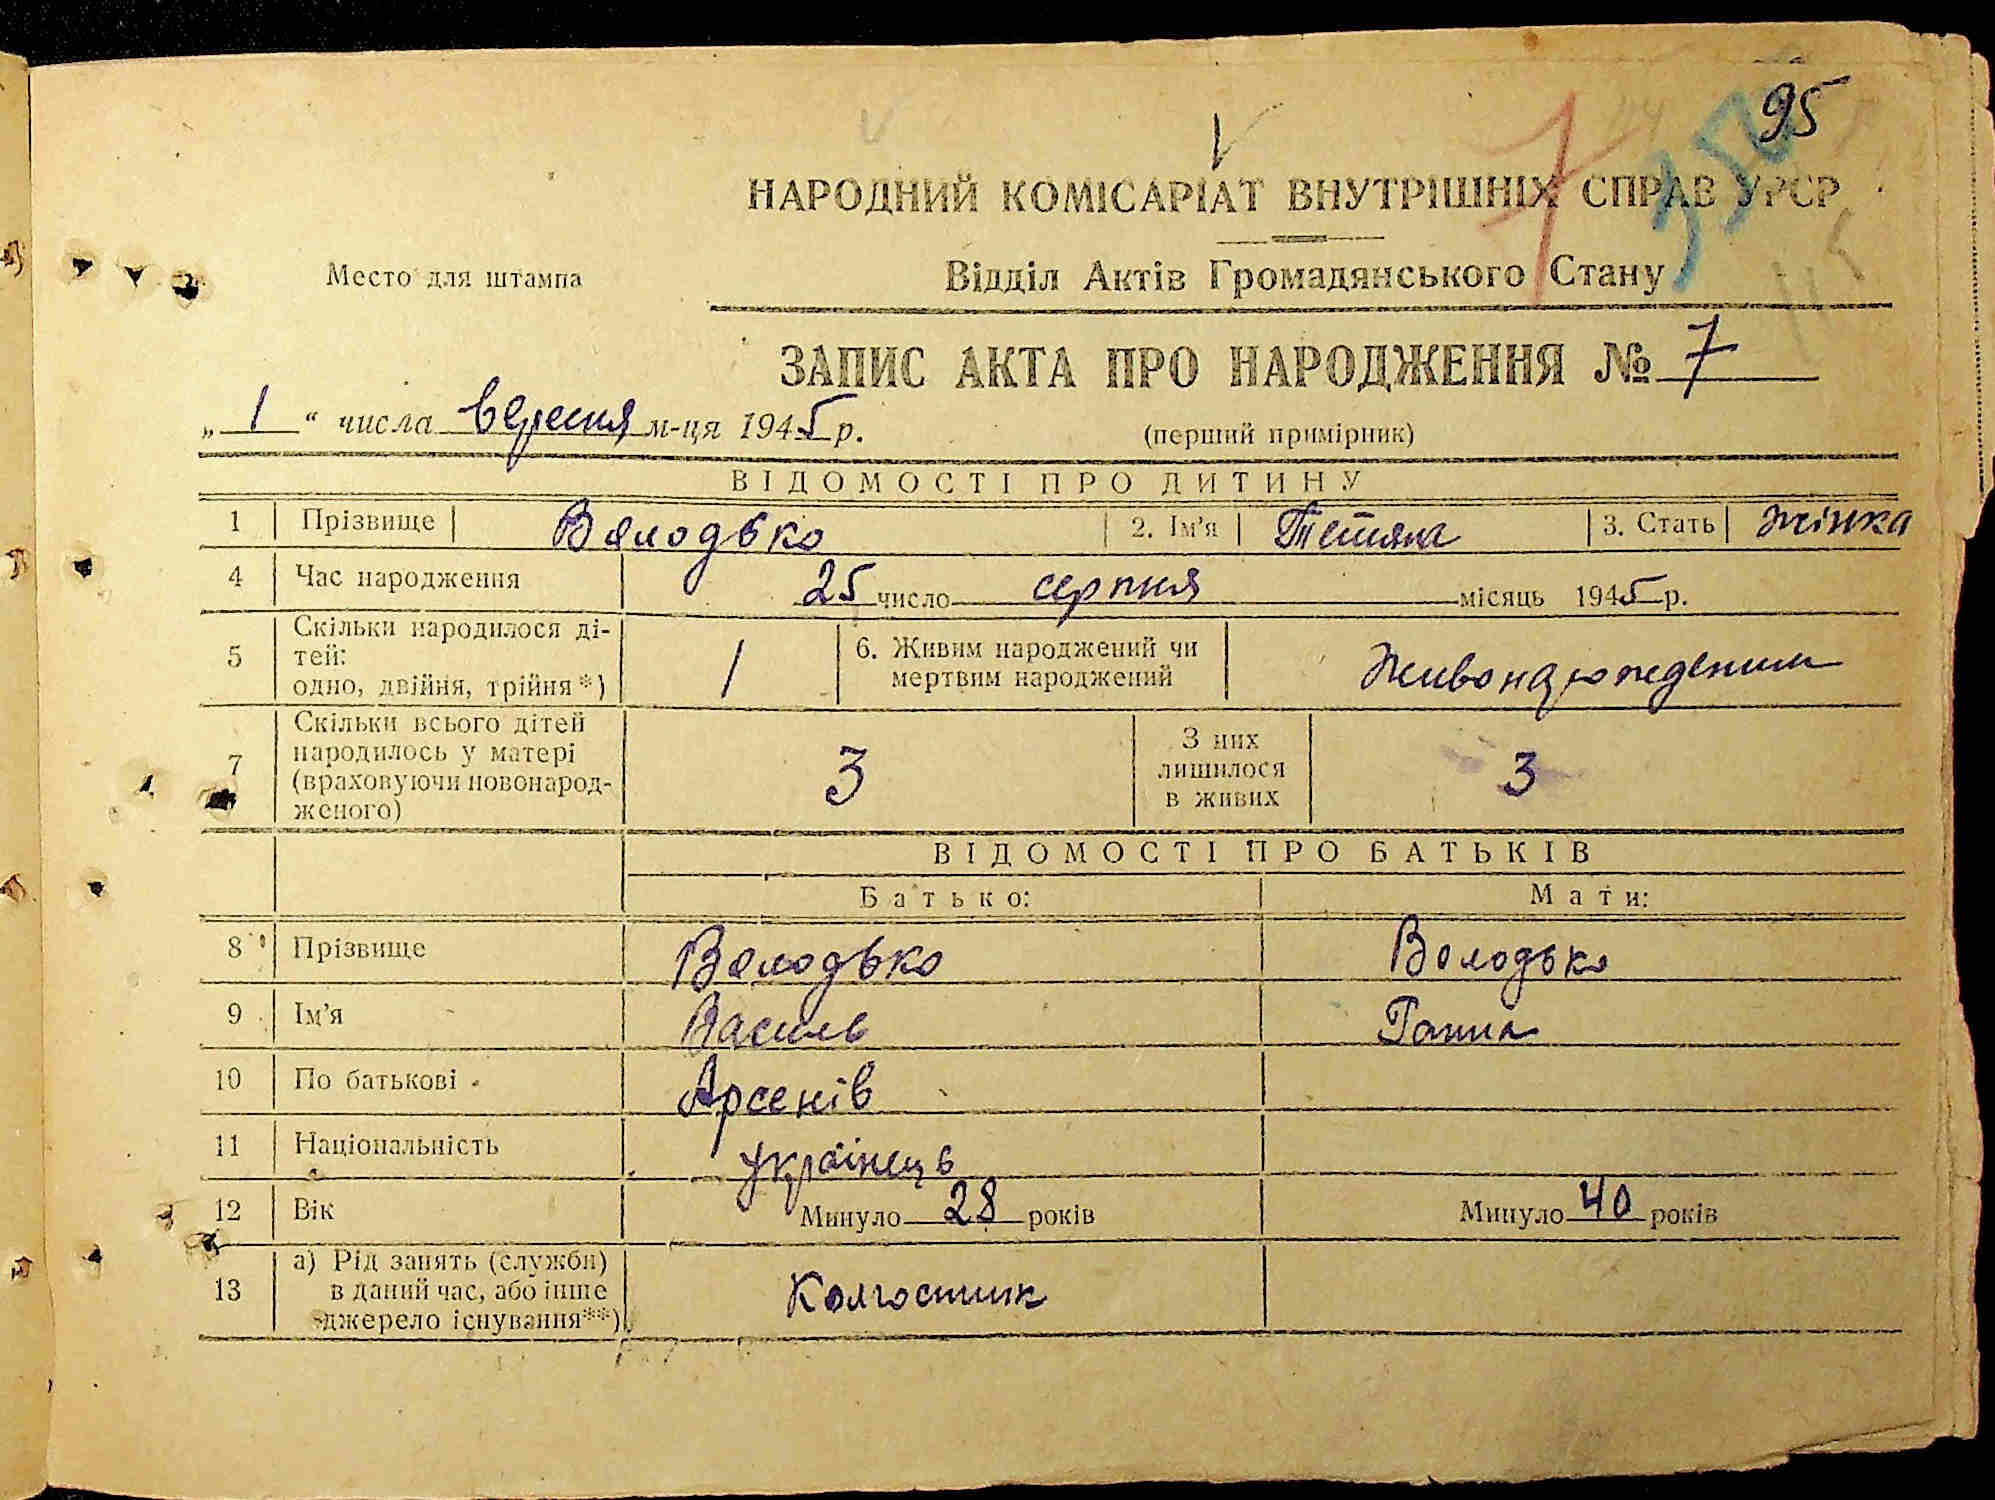 95
НАРОДНИЙ КОМІСАРІАТ ВНУТРІШНІХ СПРАВ УРСР
Место для штампа
Відділ Актів Громадянського Стану
ЗАПИС АКТА ПРО НАРОДЖЕННЯ № 7
„ 1 “ числа вересня м-ця 1945 р.
(перший примірник)
ВІДОМОСТІ ПРО ДИТИНУ
1 Прізвище Володько 2. Ім'я Тетяна 3. Стать жінка
4 Час народження 25 число серпня місяць 1945 р.
5 Скільки народилося ді-
тей:
одно, двійня, трійня*) 1 6. Живим народжений чи
мертвим народжений
7 Скільки всього дітей
народилось у матері
(враховуючи новонарод-
женого) 3 З них
лишилося
в живих 3
ВІДОМОСТІ ПРО БАТЬКІВ
Батько: Мати:
8 Прізвище Володько Володько
9 Ім'я Василь Ганна
10 По батькові Арсенів
11 Національність українець
12 Вік Минуло 28 років Минуло 40 років
13 а) Рід занять (служби)
в даний час, або інше
джерело існування**) Колгоспник